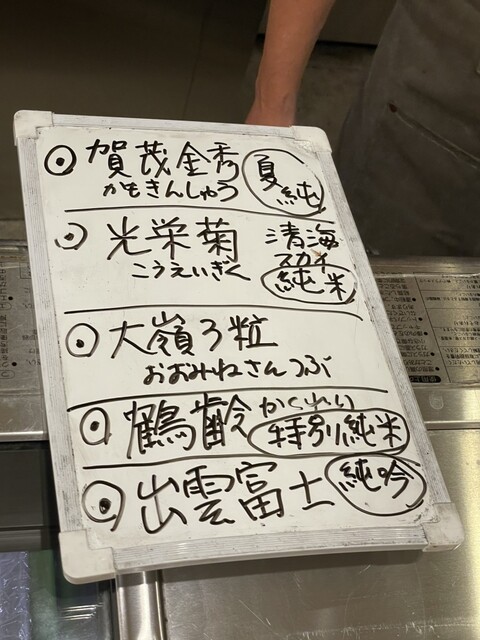 ◉ 賀茂金秀 夏純
かもきんしゅう
◉ 光栄菊 清海スカイ
こうえいぎく 純米
◉ 大嶺3粒
おおみねさんつぶ
◉ 鶴齢 かくれい
特別純米
◉ 出雲富士 純吟